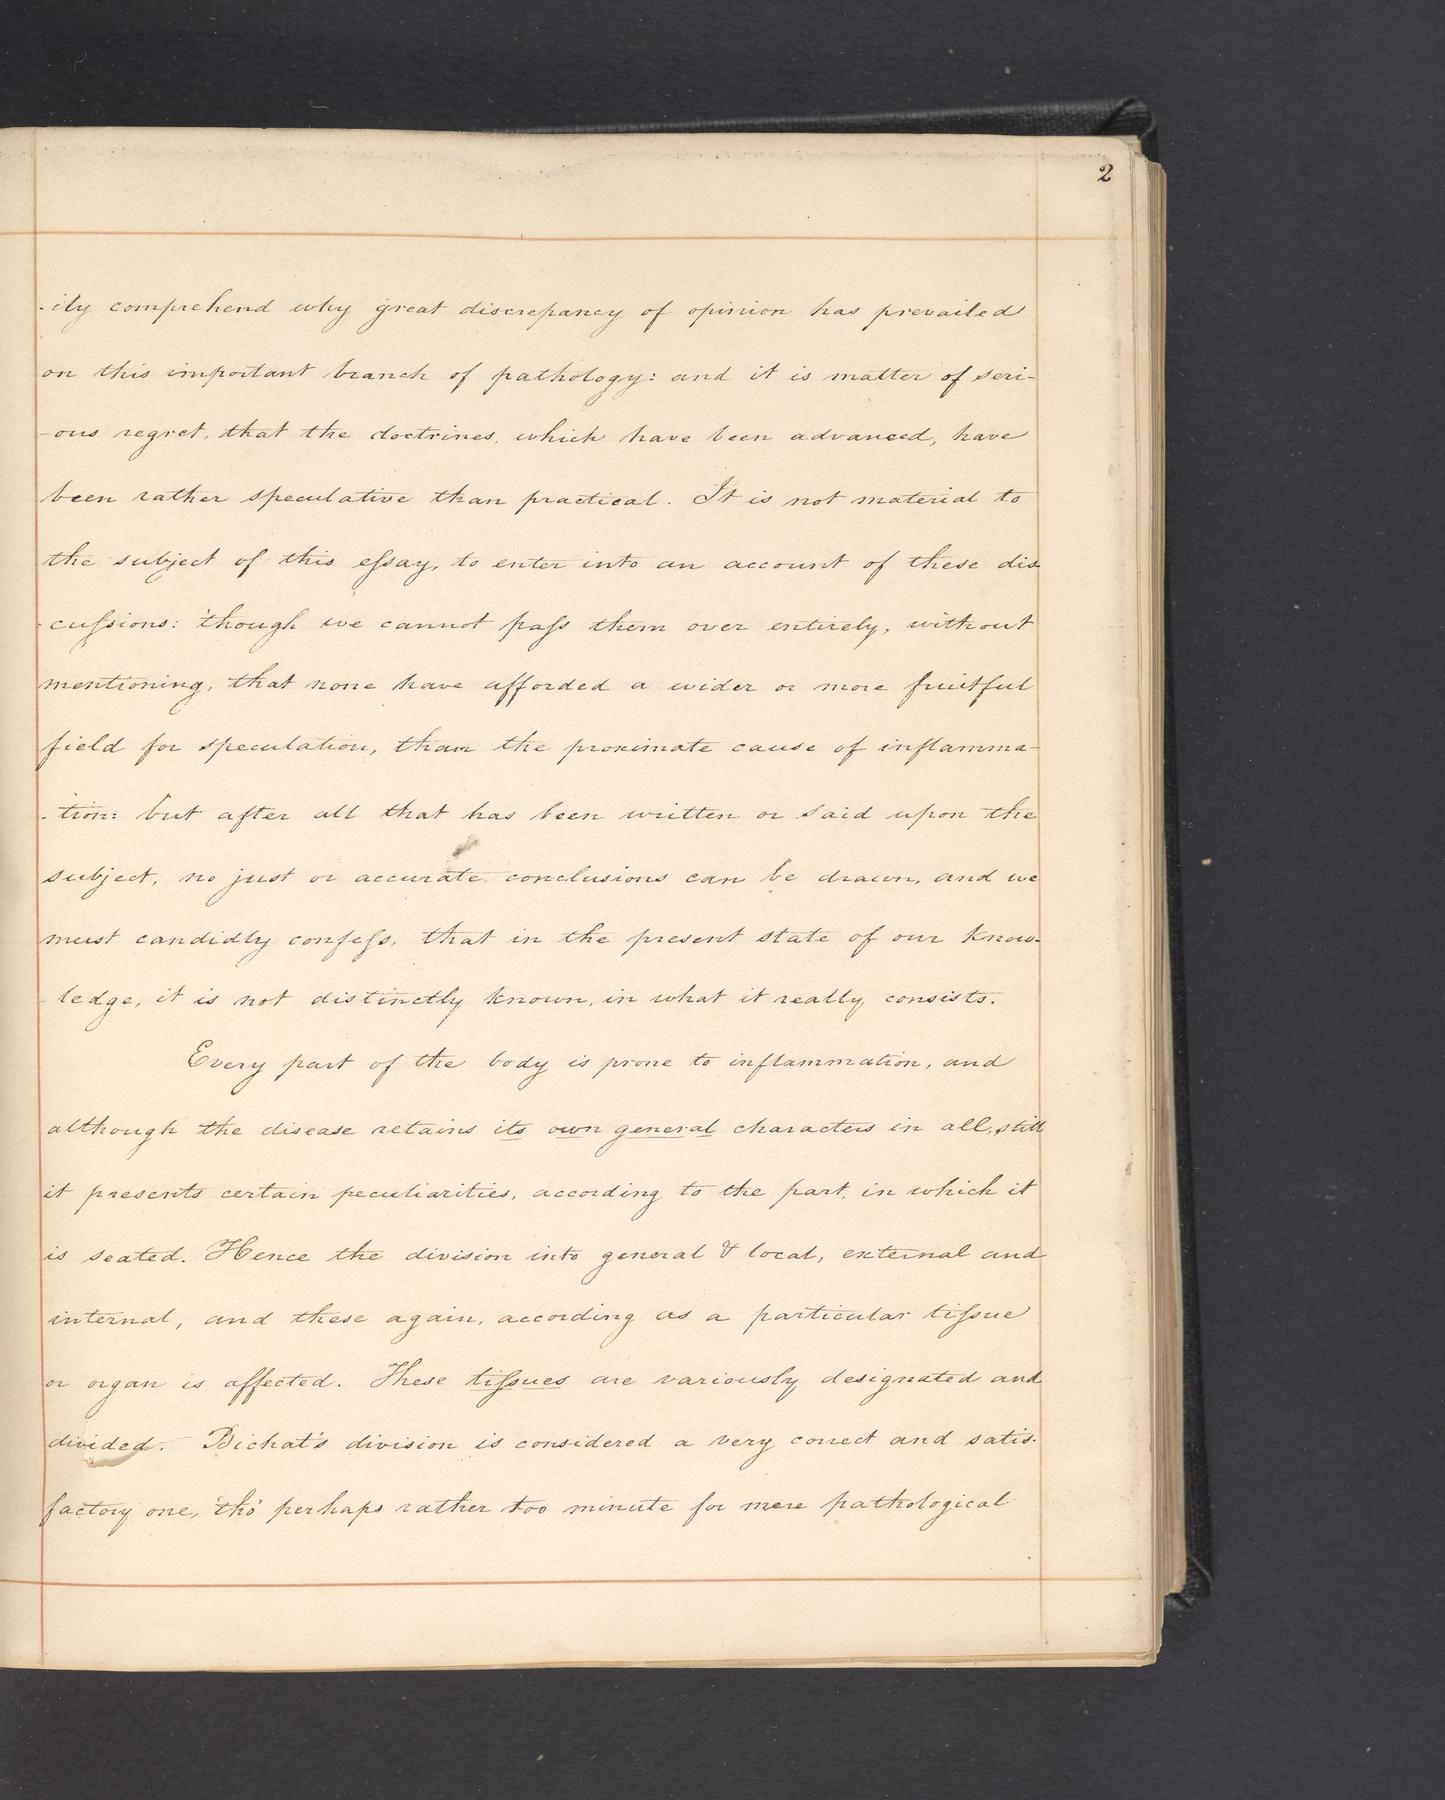 2
-ily comprehend why great discrepancy of opinion has prevailed
on this important branch of pathology: and it is matter of seri-
-ous regret, that the doctrines, which have been advanced, have
been rather speculative than practical. It is not material to
the subject of this eſsay, to enter into an account of these dis-
-cuſsions: though we cannot paſs them over entirely, without
mentioning, that none have afforded a wider or more fruitful
field for speculation, than the proximate cause of inflamma-
-tion: but after all that has been written or said upon the
subject, no just or accurate conclusions can be drawn, and we
must candidly confeſs, that in the present state of our know-
-ledge, it is not distinctly known, in what it really consists.
Every part of the body is prone to inflammation, and
although the disease retains its own general characters in all, still
it presents certain peculiarities, according to the part, in which it
is seated. Hence the division into general & local, external and
internal, and these again, according as a particular tiſsue
or organ is affected. These tiſsues are variously designated and
divided. Bichat's division is considered a very correct and satis-
factory one, tho' perhaps rather too minute for mere pathological